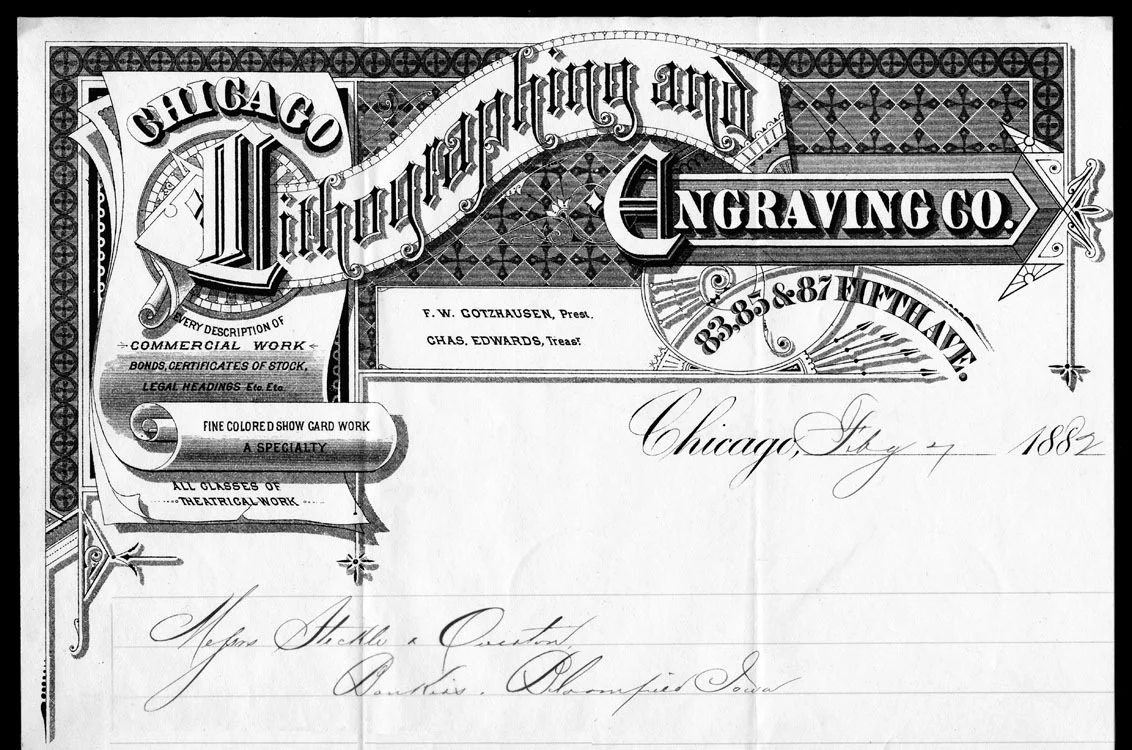 CHICAGO
Lithographing and
ENGRAVING CO.
83, 85 & 87 FIFTH AVE.
F. W. GOTZHAUSEN, Prest.
CHAS. EDWARDS, Treast.
EVERY DESCRIPTION OF
COMMERCIAL WORK
BONDS, CERTIFICATES OF STOCK,
LEGAL HEADINGS Etc. Etc.
FINE COLORED SHOW CARD WORK
A SPECIALTY
ALL CLASSES OF
THEATRICAL WORK
Chicago, Feby 7 1882
Messrs Steckle &
Bankers. Bloomfield Iowa